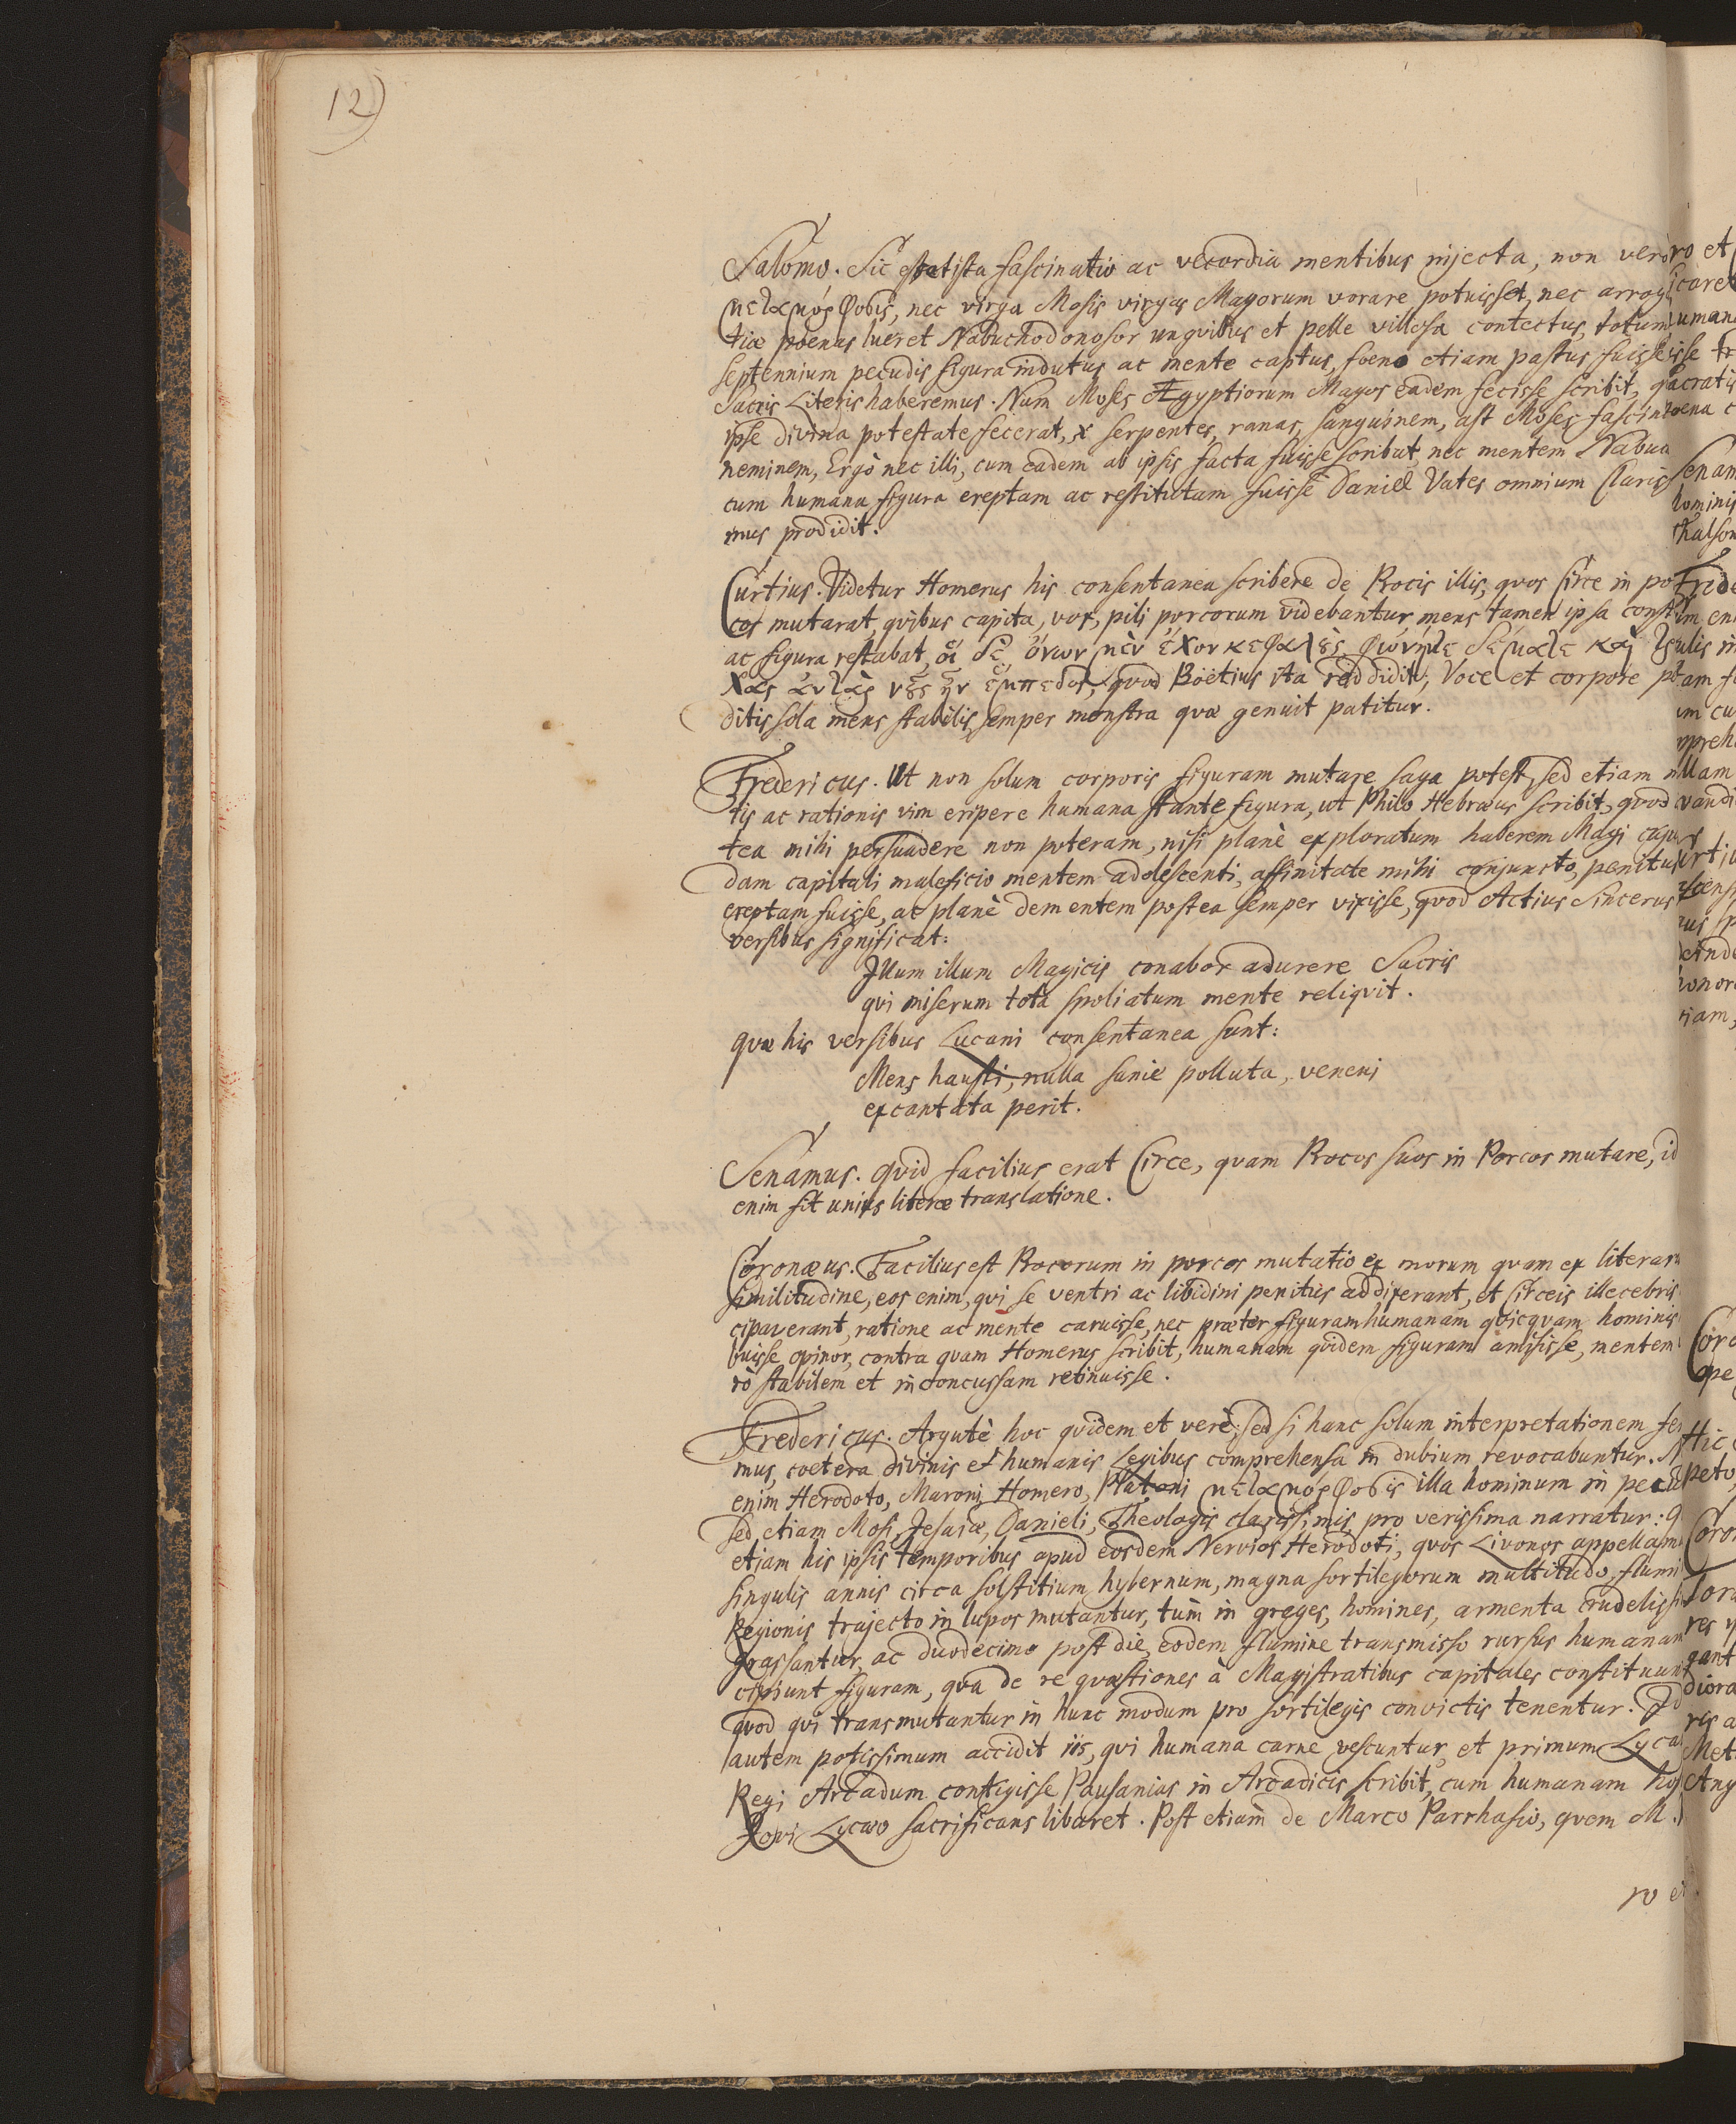 12)
Salomo. Sic est ista fascinatio ac vecordia mentibus injecta, non vero
μεταμόρφωσις, nec virga Mosis virgas Magorum vorare potuisset, nec arrog
tiæ poenas lueret Nabuchodonosor unguibus et pelle villosa contectus, totum
septennium pecudis figura indutus ac mente captus, foeno etiam pastus fuisse
Sacris Literis haberemus. Nam Moses Ægyptiorum Magos eadem fecisse scribit, q
ipse divina potestate fecerat, x serpentes, ranas, sanguinem, ast Moses fascin
neminem, Ergò nec illi, cum eadem ab ipsis facta fuisse scribat, nec mentem Nabuc
cum humana figura ereptam ac restitutam fuisse Daniel Vates omnium Clariss
mus prodidit.
Curtius. Videtur Homerus his consentanea scribere de Procis illis, quos Circe in po
cos mutarat, quibus capita, vox, pili porcorum videbantur, mens tamen ipsa const
ac figura restabat, οἱ δὲ ὄνων μὲν ἔχον κεφαλὰς, φωνήτε δέματε καὶ
νοῦς ἦν ἔμπεδος, quod Boëtius ita reddidit, Voce et corpore p
ditis sola mens stabilis, semper monstra quæ genuit patitur.
Fredericus. Ut non solum corporis figuram mutare saga potest, sed etiam m
tis ac rationis vim eripere humana stante figura, ut Philo Hebræus scribit, quod
tea mihi persuadere non poteram, nisi planè exploratum haberem Magi cujus
dam capitali maleficio mentem adolescenti, affinitate mihi conjuncto, penitus
ereptam fuisse, ac planè dementem postea semper vixisse, quod Actius Sincerus
versibus significat:
Illum illum Magicis conabor adurere Sacris
qui miserum tota spoliatum mente reliquit.
quæ his versibus Lucani consentanea sunt:
Mens hausti, nulla sanie polluta, veneni
excantata perit.
Senamus. Quid facilius erat Circe, quam Procos suos in Porcos mutare, id
enim fit unius literæ translatione.
Coronæus. Facilius est Procorum in porcos mutatio ex morum quam ex literar
similitudine, eos enim, qui se ventri ac libidini penitus addixerant, et Circeis illecebris
cipaverant, ratione ac mente caruisse, nec præter figuram humanam quicquam hominis
buisse, opinor, contra quam Homerus scribit, humanam quidem figuram amisisse, mentem
rò stabilem et inconcussam retinuisse.
Fredericus. Argutè hoc quidem et verè; sed si hanc solum interpretationem se
mus, coetera divinis et humanis Legibus comprehensa in dubium revocabuntur. N
enim Herodoto, Maroni, Homero, Platoni μεταμόρφωσις illa hominum in pecu
sed etiam Mosi, Jesajæ, Danieli, Theologis clarissimis, pro verissima narratur: Q
etiam his ipsis temporibus apud eosdem Nervios Herodoti, quos Livonos appellam
singulis annis circa solstitium hybernum, magna sortilegorum multitudo, flumi
Regionis trajecto in lupos mutantur, tùm in greges, homines, armenta crudeliss
grassantur, ac duodecimo post die, eodem flumine transmisso rursus humanam
cipiunt figuram, qua de re quæstiones à Magistratibus capitales constituunt
quod qui transmutantur in hunc modum pro sortilegis convictis tenentur. Id
autem potissimum accidit iis, qui humana carne vescuntur, et primum Lyca
Regi Arcadum contigisse Pausanias in Arcadicis scribit, cum humanam ho
Jovi Lycæo sacrificans libaret. Post etiam de Marco Parrhasio, quem M.
ro et